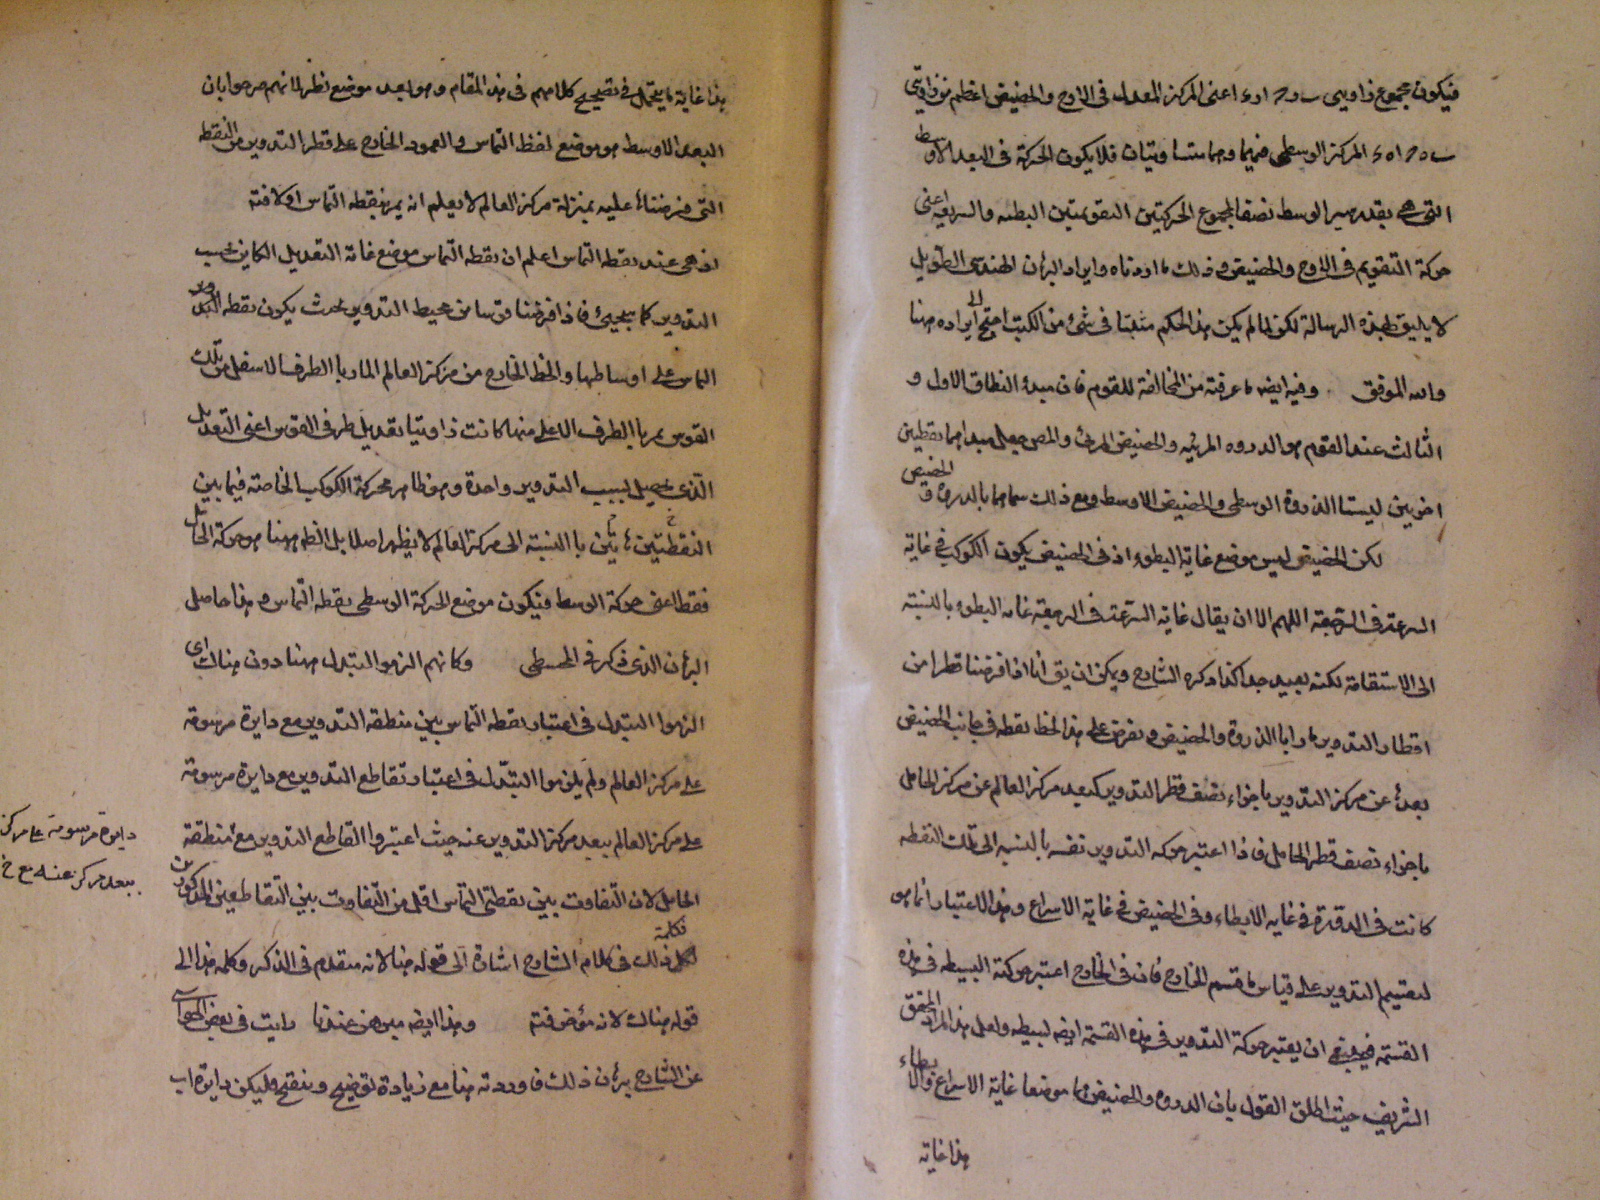 فيكون مجموع زاويتى ب د ح ا د ء اعنى المركز المعدل فى الاوج والحضيض اعظم من زاويتى
ب ه ح ا ه ء المركز الوسطى فيهما وهما متساويتان فلا يكون الحركة فى البعد الاوسط
التى هى بقدر سير الوسط نصفا لمجموع الحركتين التقويميتين البطيئه والسريعه اعنى
حركة التقويم فى الاوج والحضيض وذلك ما اردناه وايراد البرهان الهندسى الطويل
لا يليق بهذه الرسالة لكن لما لم يكن هذا الحكم مثبتا فى شئ من الكتب احتيج الى ايراده هنا
والله الموفق وفيه ايضا ما عرفته من المخالفة للقوم فان مبدء النطاق الاول و
الثالث عند القوم هو الذروه المرئيه والحضيض المرئى والمص جعل مبداهما نقطتين
اخريين ليستا الذروة الوسطى والحضيض الاوسط ومع ذلك سماهما بالذروة و الحضيض
لكن الحضيض ليس موضع غاية البطوء اذ فى الحضيض يكون الكوكب فى غاية
السرعة فى الرجعة اللهم الا ان يقال غاية السرعة فى الرجعة غاية البطوء بالنسبة
الى الاستقامة لكنه بعيد جدا كذا ذكره الشارح ويمكن ان يق انا اذا فرضنا قطرا من
اقطار التدوير مارا بالذروة والحضيض ونفرض على هذا الخط نقطه فى جانب الحضيض
بعدها عن مركز التدوير باجزاء نصف قطر التدوير كبعد مركز العالم عن مركز الحامل
باجزاء نصف قطر الحامل فاذا اعتبر حركة التدوير نفسه بالنسبه الى تلك النقطه
كانت فى الذروة فى غاية الابطاء وفى الحضيض فى غاية الاسراع وهذا الاعتبار انما هو
لتقسيم التدوير على قياس ما قسم الخارج فان فى الخارج اعتبر حركته البسيطه فى هذه
القسمة فينبغى ان يعتبر حركة التدوير فى هذه القسمة ايضا بسيطه ولعل هذا المراد المحقق
الشريف حيث اطلق القول بان الذروه والحضيض هما موضعا غاية الاسراع والابطاء
هذا غاية
هذا غاية ما يتمحل فى تصحيح كلامهم فى هذا المقام وهو ابعد موضع نظر لانهم صرحوا بان
البعد الاوسط هو موضع لفظ التماس والعمود الخارج على قطر التدوير من النقطه
التى فرضناها عليه بمنزلة مركز العالم لا يعلم انه يمر بنقطه التماس او لا فته
اذ هى عند نقطه التماس اعلم ان نقطه التماس موضع غاية التعديل الكاين بحسب
التدوير كما سيجئ فاذا فرضنا قوسا من محيط التدوير بحيث يكون نقطه التماس
على اوساطها والخط الخارج من مركز العالم المار بالطرف الاسفل من تلك
القوس يمر بالطرف الاعلى منها كانت زاويتا تعديل طرفى القوس اعنى التعديل
الذى يحصل بسبب التدوير واحدة وهو ظاهر فحركة الكوكب الخاصة فيما بين
النقطتين بالنسبة الى مركز العالم لا يظهر اصلا بل الظاهر هنا هو حركة الحامل
فقط اعنى حركة الوسط فيكون موضع الحركة الوسطى نقطه التماس وهذا حاصل
البرهان الذى ذكر فى المجسطى وكانهم التزموا التبدل هنا دون هناك اى
التزموا التبدل فى اعتبار نقطه التماس بين منطقة التدوير مع دايرة مرسومة
على مركز العالم ولم يلتزموا التبدل فى اعتبار تقاطع التدوير مع دايرة مرسومة
على مركز العالم ببعد مركز التدوير عنه حيث اعتبروا التقاطع التدوير مع منطقة
الحامل لان التفاوت بين نقطتى التماس اقل من التفاوت بين التقاطعين المذكورين
فكلمة ذلك فى كلام الشارح اشارة الى قوله هنا لانه متقدم فى الذكر وكلمة هذا الى
قوله هناك لانه مؤخر فته وهذا ايضا مبرهن عندنا رايت فى بعض الحواشى
عن الشارح برهان ذلك فاوردته هنا مع زيادة توضيح وتنقيح وليكن دايرة اب
دايرة مرسومة على مركز
ببعد مركزه عنه مع خ